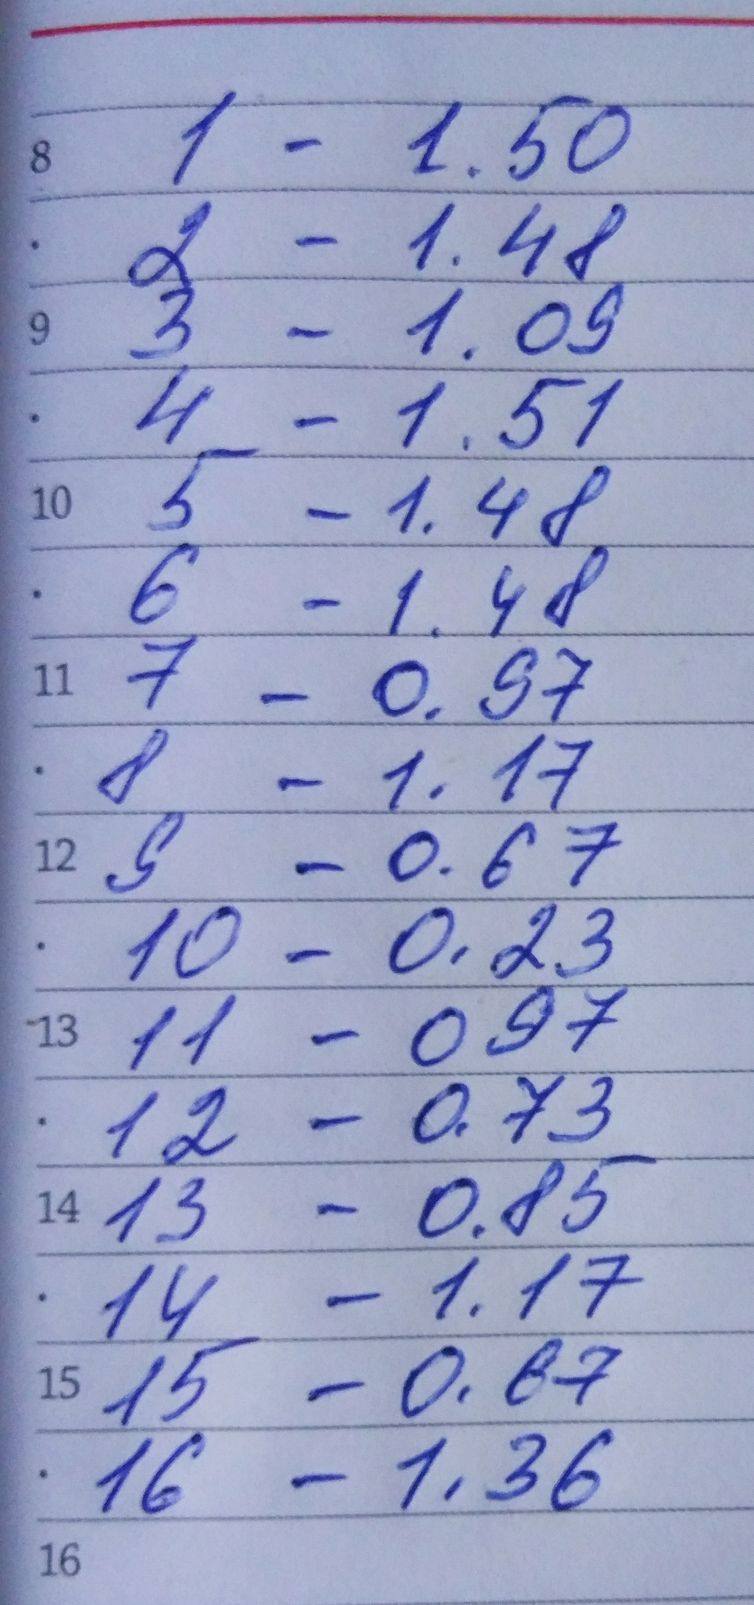 8 1 - 1.50
. 2 - 1.48
9 3 - 1.09
. 4 - 1.51
10 5 - 1.48
. 6 - 1.48
11 7 - 0.97
. 8 - 1.17
12 9 - 0.67
. 10 - 0.23
13 11 - 097
. 12 - 0.73
14 13 - 0.85
. 14 - 1.17
15 15 - 0.67
. 16 - 1.36
16